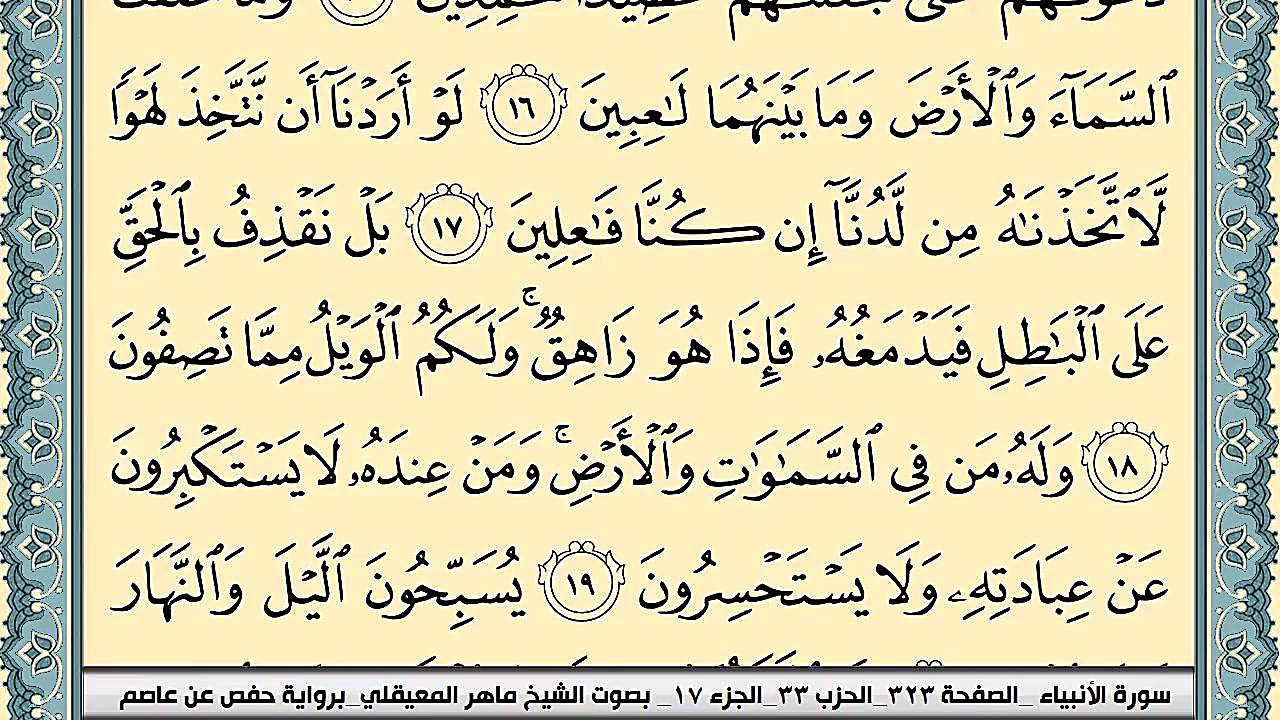 ٱلسَّمَآءَ وَٱلْأَرْضَ وَمَا بَيْنَهُمَا لَـٰعِبِينَ ١٦ لَوْ أَرَدْنَآ أَن نَّتَّخِذَ لَهْوًا
لَّٱتَّخَذْنَـٰهُ مِن لَّدُنَّآ إِن كُنَّا فَـٰعِلِينَ ١٧ بَلْ نَقْذِفُ بِٱلْحَقِّ
عَلَى ٱلْبَـٰطِلِ فَيَدْمَغُهُۥ فَإِذَا هُوَ زَاهِقٌ ۚ وَلَكُمُ ٱلْوَيْلُ مِمَّا تَصِفُونَ
١٨ وَلَهُۥ مَن فِى ٱلسَّمَـٰوَٰتِ وَٱلْأَرْضِ ۚ وَمَنْ عِندَهُۥ لَا يَسْتَكْبِرُونَ
عَنْ عِبَادَتِهِۦ وَلَا يَسْتَحْسِرُونَ ١٩ يُسَبِّحُونَ ٱلَّيْلَ وَٱلنَّهَارَ
سورة الأنبياء _الصفحة ٣٢٣_الحزب ٣٣_الجزء ١٧_ بصوت الشيخ ماهر المعيقلي_برواية حفص عن عاصم